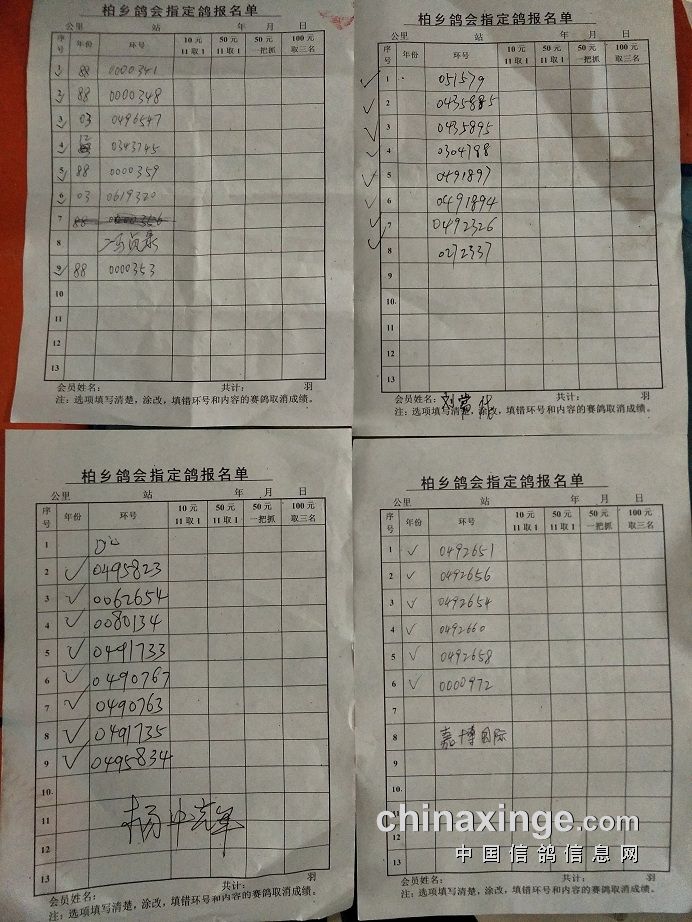 柏乡鸽会指定鸽报名单
公里 站 年 月 日
序号 年份 环号 10元11取1 50元11取1 50元一把抓 100元取三名
1 88 0000341
2 88 0000348
3 03 0496547
4 12 0343745
5 88 0000359
6 03 0619320
7 88 0000356
8
9 88 0000353
10
11
12
13
会员姓名: 共计: 羽
注:选项填写清楚,涂改,填错环号和内容的赛鸽取消成绩。
柏乡鸽会指定鸽报名单
公里 站 年 月 日
序号 年份 环号 10元11取1 50元11取1 50元一把抓 100元取三名
1 051579
2 0435885
3 0435895
4 0304798
5 0491897
6 0491894
7 0492326
8 0272337
9
10
11
12
13
会员姓名: 共计: 羽
注:选项填写清楚,涂改,填错环号和内容的赛鸽取消成绩。
柏乡鸽会指定鸽报名单
公里 站 年 月 日
序号 年份 环号 10元11取1 50元11取1 50元一把抓 100元取三名
1
2 ✓ 0495823
3 ✓ 0062654
4 ✓ 0080134
5 ✓ 0491733
6 ✓ 0490767
7 ✓ 0490763
8 ✓ 0491735
9 ✓ 0495834
10
11 杨
12
13
会员姓名: 共计: 羽
注:选项填写清楚,涂改,填错环号和内容的赛鸽取消成绩。
柏乡鸽会指定鸽报名单
公里 站 年 月 日
序号 年份 环号 10元11取1 50元11取1 50元一把抓 100元取三名
1 ✓ 0492651
2 ✓ 0492656
3 ✓ 0492654
4 ✓ 0492660
5 ✓ 0492658
6 ✓ 0000972
7
8 嘉博国际
9
10
11
12
13
会员姓名: 共计: 羽
注:选项填写清楚,涂改,填错环号和内容的赛鸽取消成绩。
chinaxinge.com
中国信鸽信息网